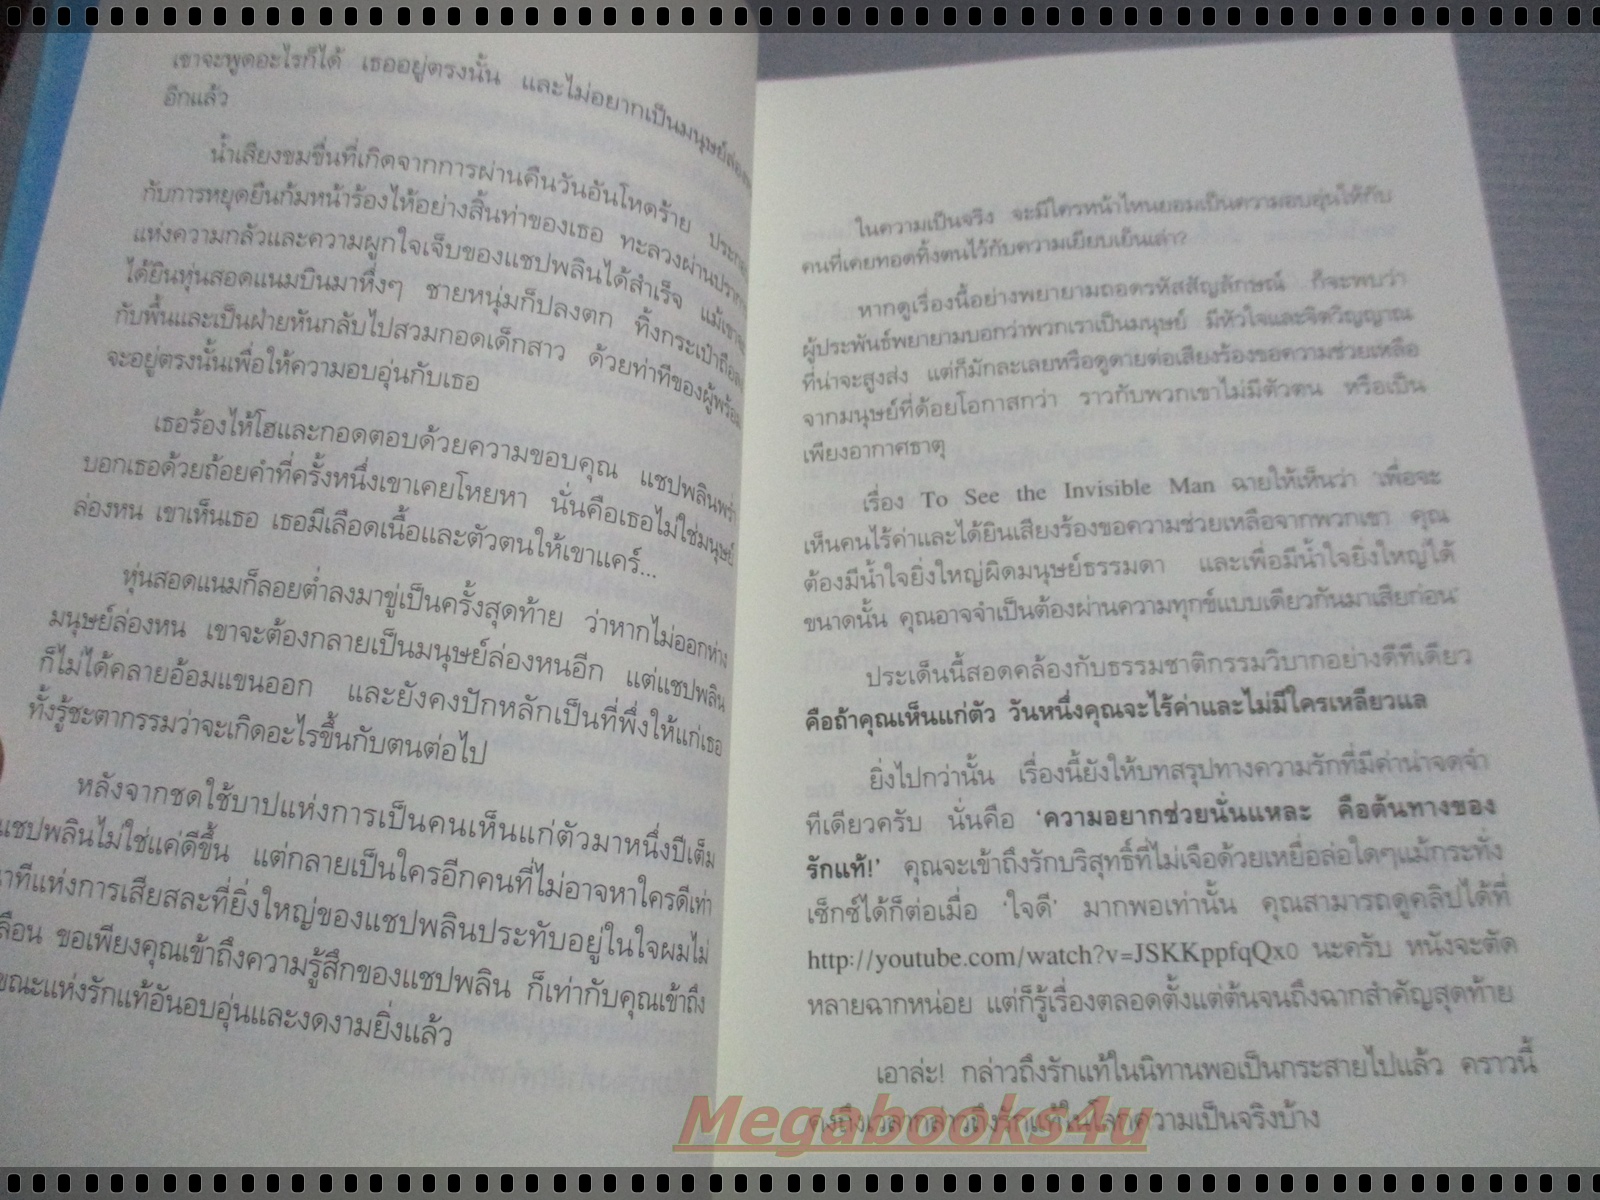 เขาจะพูดอะไรก็ได้ เธออยู่ตรงนั้น และไม่อยากเป็นมนุษย์ล่องหน
อีกแล้ว
น้ำเสียงขมขื่นที่เกิดจากการผ่านคืนวันอันโหดร้าย
กับการหยุดยืนก้มหน้าร้องไห้อย่างสิ้นท่าของเธอ ทะลวงผ่านปราการ
แห่งความกลัวและความผูกใจเจ็บของแชปพลินได้สำเร็จ แม้เขาจะ
ได้ยินหุ่นสอดแนมบินมาหึ่งๆ ชายหนุ่มก็ปลงตก ทิ้งกระเป๋าถือลง
กับพื้นและเป็นฝ่ายหันกลับไปสวมกอดเด็กสาว ด้วยท่าทีของผู้พร้อม
จะอยู่ตรงนั้นเพื่อให้ความอบอุ่นกับเธอ
เธอร้องไห้โฮและกอดตอบด้วยความขอบคุณ แชปพลินพร่ำ
บอกเธอด้วยถ้อยคำที่ครั้งหนึ่งเขาเคยโหยหา นั่นคือเธอไม่ใช่มนุษย์
ล่องหน เขาเห็นเธอ เธอมีเลือดเนื้อและตัวตนให้เขาแคร์...
หุ่นสอดแนมก็ลอยต่ำลงมาขู่เป็นครั้งสุดท้าย ว่าหากไม่ออกห่าง
มนุษย์ล่องหน เขาจะต้องกลายเป็นมนุษย์ล่องหนอีก แต่แชปพลิน
ก็ไม่ได้คลายอ้อมแขนออก และยังคงปักหลักเป็นที่พึ่งให้แก่เธอ
ทั้งรู้ชะตากรรมว่าจะเกิดอะไรขึ้นกับตนต่อไป
หลังจากชดใช้บาปแห่งการเป็นคนเห็นแก่ตัวมาหนึ่งปีเต็ม
แชปพลินไม่ใช่แค่ดีขึ้น แต่กลายเป็นใครอีกคนที่ไม่อาจหาใครดีเท่า
าทีแห่งการเสียสละที่ยิ่งใหญ่ของแชปพลินประทับอยู่ในใจผมไม่
ลือน ขอเพียงคุณเข้าถึงความรู้สึกของแชปพลิน ก็เท่ากับคุณเข้าถึง
ขณะแห่งรักแท้อันอบอุ่นและงดงามยิ่งแล้ว
ในความเป็นจริง จะมีใครหน้าไหนยอมเป็นความอบอุ่นให้กับ
คนที่เคยทอดทิ้งตนไว้กับความเยียบเย็นเล่า?
หากดูเรื่องนี้อย่างพยายามถอดรหัสสัญลักษณ์ ก็จะพบว่า
ผู้ประพันธ์พยายามบอกว่าพวกเราเป็นมนุษย์ มีหัวใจและจิตวิญญาณ
ที่น่าจะสูงส่ง แต่ก็มักละเลยหรือดูดายต่อเสียงร้องขอความช่วยเหลือ
จากมนุษย์ที่ด้อยโอกาสกว่า ราวกับพวกเขาไม่มีตัวตน หรือเป็น
เพียงอากาศธาตุ
เรื่อง To See the Invisible Man ฉายให้เห็นว่า 'เพื่อจะ
เห็นคนไร้ค่าและได้ยินเสียงร้องขอความช่วยเหลือจากพวกเขา คุณ
ต้องมีน้ำใจยิ่งใหญ่ผิดมนุษย์ธรรมดา และเพื่อมีน้ำใจยิ่งใหญ่ได้
ขนาดนั้น คุณอาจจำเป็นต้องผ่านความทุกข์แบบเดียวกันมาเสียก่อน'
ประเด็นนี้สอดคล้องกับธรรมชาติกรรมวิบากอย่างดีทีเดียว
คือถ้าคุณเห็นแก่ตัว วันหนึ่งคุณจะไร้ค่าและไม่มีใครเหลียวแล
ยิ่งไปกว่านั้น เรื่องนี้ยังให้บทสรุปทางความรักที่มีค่าน่าจดจำ
ทีเดียวครับ นั่นคือ 'ความอยากช่วยนั่นแหละ คือต้นทางของ
รักแท้!' คุณจะเข้าถึงรักบริสุทธิ์ที่ไม่เจือด้วยเหยื่อล่อใดๆแม้กระทั่ง
เซ็กซ์ได้ก็ต่อเมื่อ 'ใจดี' มากพอเท่านั้น คุณสามารถดูคลิปได้ที่
http://youtube.com/watch?v=JSKKppfqQx0 นะครับ หนังจะตัด
หลายฉากหน่อย แต่ก็รู้เรื่องตลอดตั้งแต่ต้นจนถึงฉากสำคัญสุดท้าย
เอาล่ะ! กล่าวถึงรักแท้ในนิทานพอเป็นกระสายไปแล้ว คราวนี้
คงถึงเวลากล่าวถึงรักแท้ในโลกความเป็นจริงบ้าง
Megabooks4u